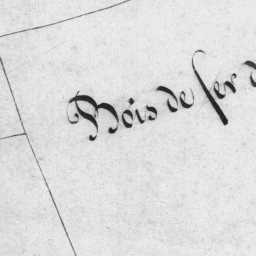 Bois de fer